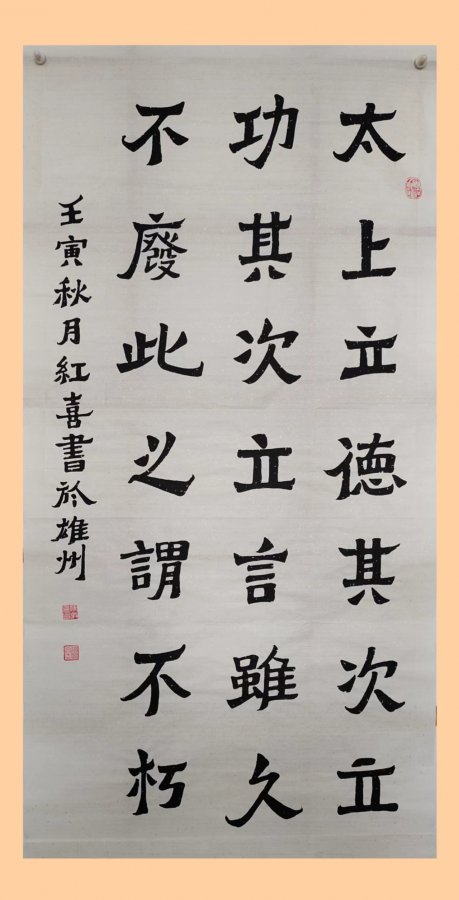 太上立德其次立
功其次立言雖久
不廢此之謂不朽
壬寅秋月紅喜書於雄州